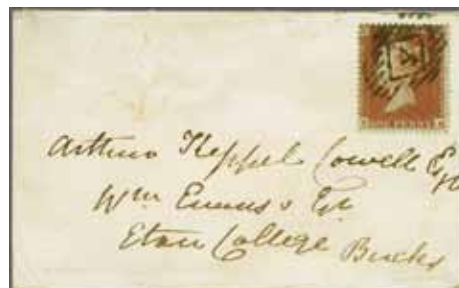 ONE PENNY
Arthur Keppel Cowell Esq
Wm Evans's Esq
Eton College Bucks